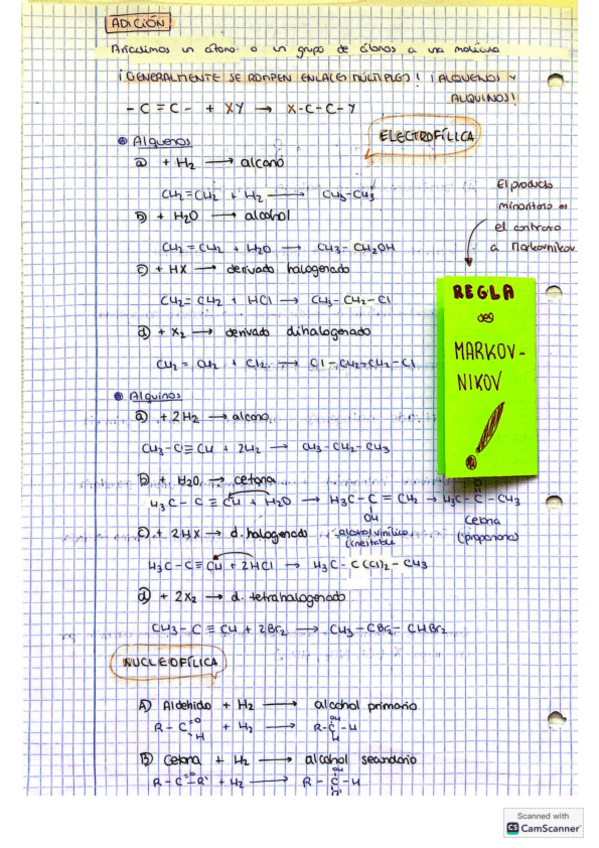 ADICIÓN
Añadimos un átomo o un grupo de átomos a una molécula
¡GENERALMENTE SE ROMPEN ENLACES MÚLTIPLES! ¡ALQUENOS Y
ALQUINOS!
- C = C - + XY → X-C-C-Y
ELECTROFÍLICA
Alquenos
a) + H2 → alcano
CH2=CH2 + H2 → CH3-CH3
b) + H2O → alcohol
CH2=CH2 + H2O → CH3-CH2OH
c) + HX → derivado halogenado
CH2=CH2 + HCl → CH3-CH2-Cl
d) + X2 → derivado dihalogenado
CH2=CH2 + Cl2 → Cl-CH2-CH2-Cl
El producto
minoritario es
el contrario
a Markovnikov
REGLA
de
MARKOV-
NIKOV
!
Alquinos
a) + 2H2 → alcano
CH3-C≡CH + 2H2 → CH3-CH2-CH3
b) + H2O → cetona
H3C-C≡CH + H2O → H3C-C=CH2 → H3C-C-CH3
OH
alcohol vinílico
(inestable)
Cetona
(propanona)
c) + 2HX → d. halogenado
H3C-C≡CH + 2HCl → H3C-C(Cl)2-CH3
d) + 2X2 → d. tetrahalogenado
CH3-C≡CH + 2Br2 → CH3-CBr2-CHBr2
NUCLEOFÍLICA
A) Aldehido + H2 → alcohol primario
R-C=O + H2 → R-C-H
H
OH
H
B) Cetona + H2 → alcohol secundario
R-C=O-R' + H2 → R-C-H
OH
Scanned with
CS CamScanner